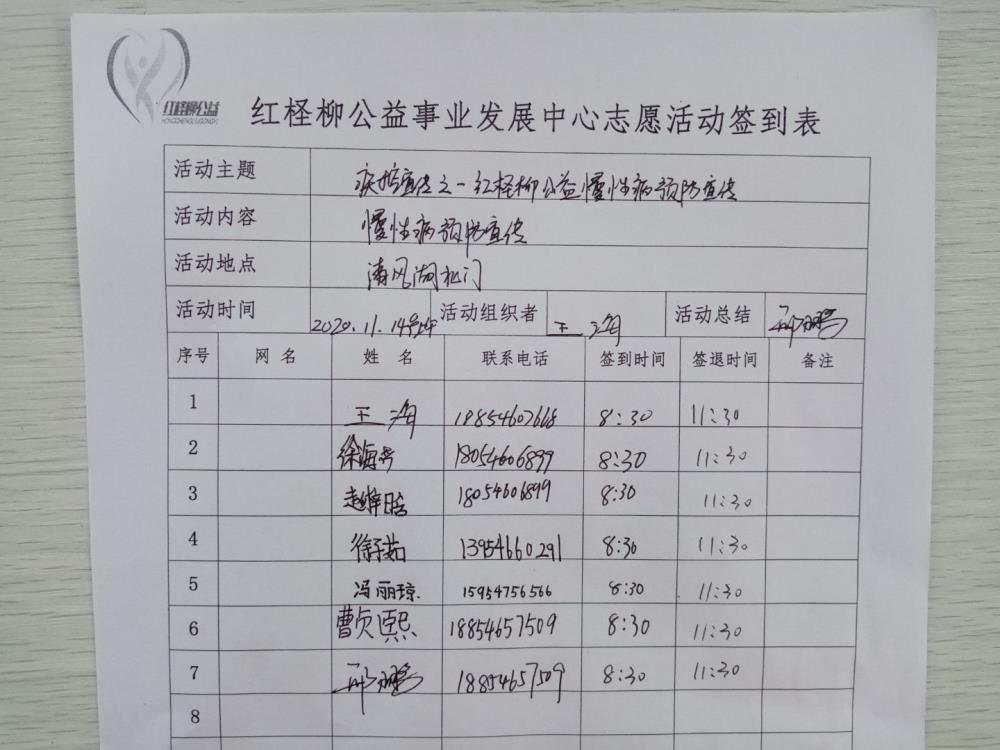 红柽柳公益
红柽柳公益事业发展中心志愿活动签到表
活动主题 疾控宣传之一红柽柳公益慢性病预防宣传
活动内容 慢性病预防宣传
活动地点 清风湖北门
活动时间 2020.11.14 活动组织者 王海 活动总结 邢鹏
序号 网名 姓名 联系电话 签到时间 签退时间 备注
1 王海 8:30 11:30
2 徐海 18054606899 8:30 11:30
3 赵梓晗 18054606899 8:30 11:30
4 徐子茹 13954660291 8:30 11:30
5 冯丽琼 15954756566 8:30 11:30
6 曹贞熙 18854657509 8:30 11:30
7 邢鹏 18854657509 8:30 11:30
8